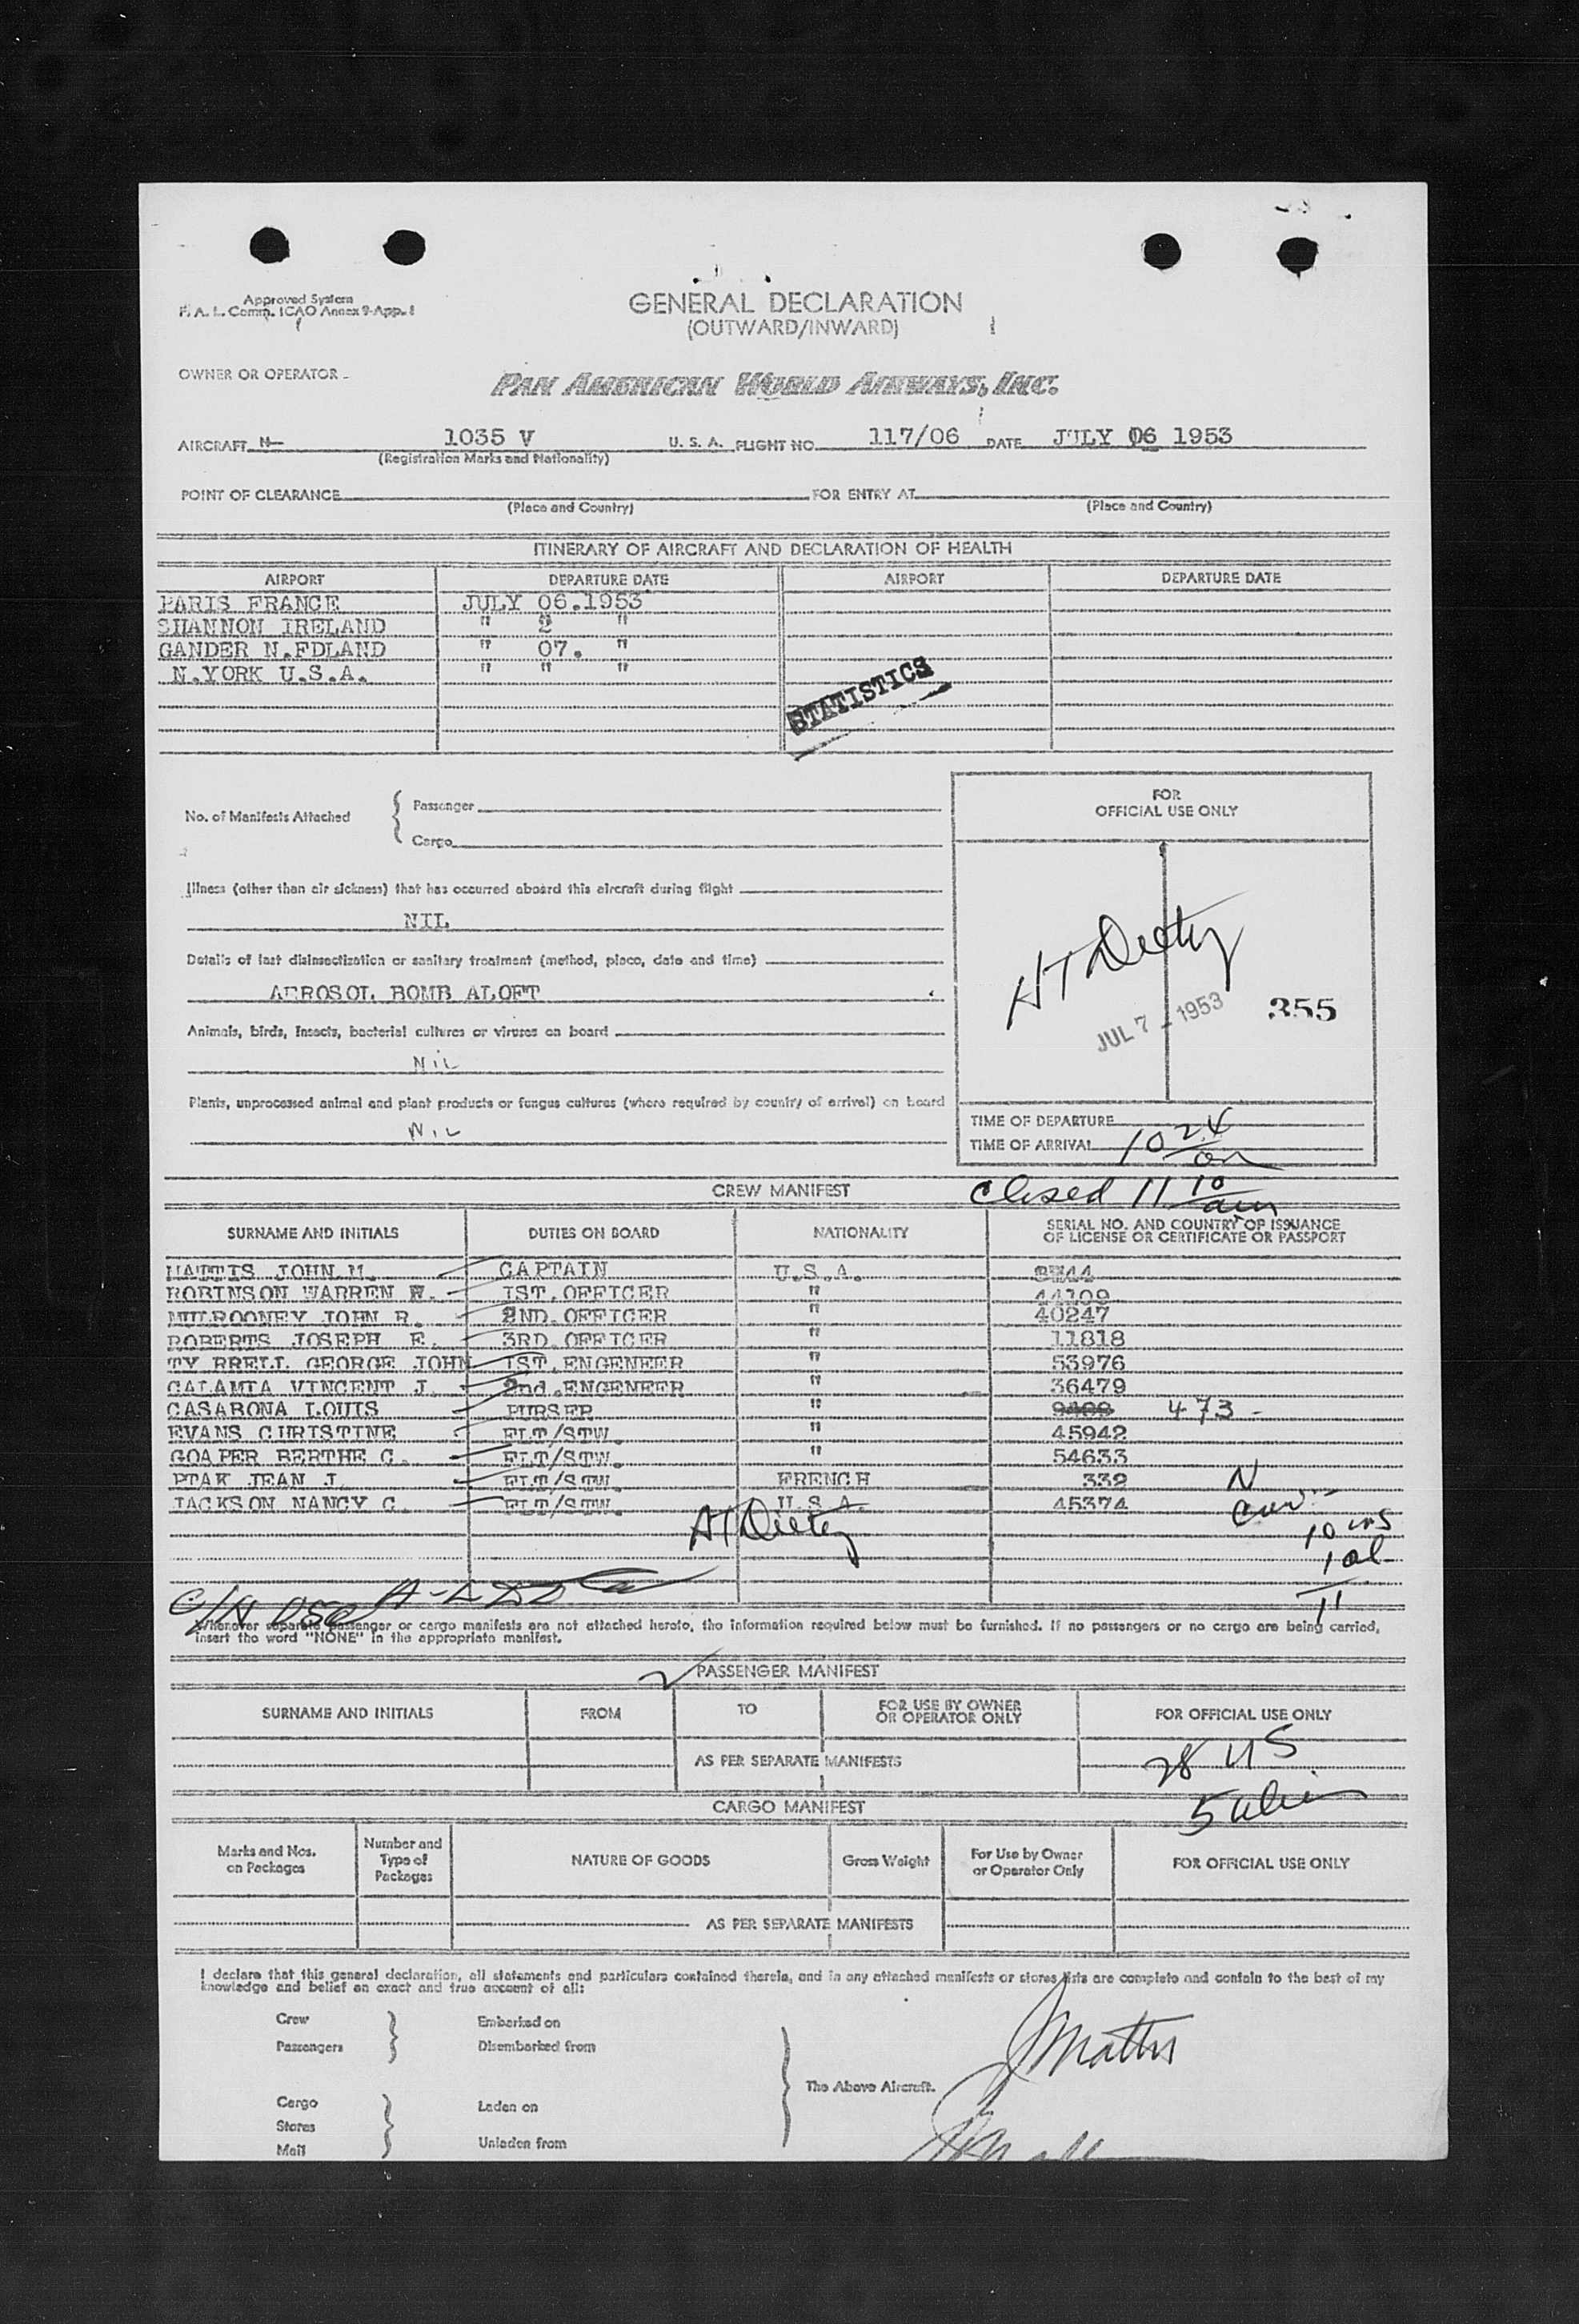 Approved System
F. A. L. Comm. ICAO Annex 9-App. 1
GENERAL DECLARATION
(OUTWARD/INWARD)
OWNER OR OPERATOR -
PAN AMERICAN WORLD AIRWAYS, INC.
AIRCRAFT N- 1035 V U. S. A. FLIGHT NO. 117/06 DATE JULY 06 1953
(Registration Marks and Nationality)
POINT OF CLEARANCE FOR ENTRY AT
(Place and Country) (Place and Country)
ITINERARY OF AIRCRAFT AND DECLARATION OF HEALTH
AIRPORT DEPARTURE DATE AIRPORT DEPARTURE DATE
PARIS FRANCE JULY 06.1953
SHANNON IRELAND " 2 "
GANDER N.FDLAND " 07. "
N.YORK U.S.A. " " "
STATISTICS
No. of Manifests Attached { Passenger
Cargo
FOR
OFFICIAL USE ONLY
Illness (other than air sickness) that has occurred aboard this aircraft during flight
NIL
Details of last disinsectization or sanitary treatment (method, place, date and time)
AEROSOL BOMB ALOFT
JUL 7 - 1953 355
Animals, birds, insects, bacterial cultures or viruses on board
NiL
Plants, unprocessed animal and plant products or fungus cultures (where required by country of arrival) on board
NiL
TIME OF DEPARTURE
TIME OF ARRIVAL 10 24 am
CREW MANIFEST closed 11 10 am
SURNAME AND INITIALS DUTIES ON BOARD NATIONALITY SERIAL NO. AND COUNTRY OF ISSUANCE
OF LICENSE OR CERTIFICATE OR PASSPORT
MATTIS JOHN M. CAPTAIN U.S.A.
ROBINSON WARREN W. 1ST.OFFICER " 44109
MULROONEY JOHN R. 2ND.OFFICER " 40247
ROBERTS JOSEPH E. 3RD.OFFICER " 11818
TY RRELL GEORGE JOHN 1ST.ENGENEER " 53976
CALAMIA VINCENT J. 2nd.ENGENEER " 36479
CASABONA LOUIS PURSER " 473 -
EVANS CHRISTINE FLT/STW. " 45942
GOAPER BERTHE C. FLT/STW. " 54633
PTAK JEAN J. FLT/STW. FRENCH 332 N
JACKSON NANCY C. FLT/STW. U.S.A. 45374
10 us
1 al
11
Whenever separate passenger or cargo manifests are not attached hereto, the information required below must be furnished. If no passengers or no cargo are being carried,
insert the word "NONE" in the appropriate manifest.
PASSENGER MANIFEST
SURNAME AND INITIALS FROM TO FOR USE BY OWNER
OR OPERATOR ONLY FOR OFFICIAL USE ONLY
AS PER SEPARATE MANIFESTS
28 US
CARGO MANIFEST
5 alien
Marks and Nos.
on Packages Number and
Type of
Packages NATURE OF GOODS Gross Weight For Use by Owner
or Operator Only FOR OFFICIAL USE ONLY
AS PER SEPARATE MANIFESTS
I declare that this general declaration, all statements and particulars contained therein, and in any attached manifests or stores lists are complete and contain to the best of my
knowledge and belief an exact and true account of all:
Crew Embarked on
Passengers Disembarked from
J Mattis
The Above Aircraft.
Cargo Laden on
Stores
Mail Unladen from